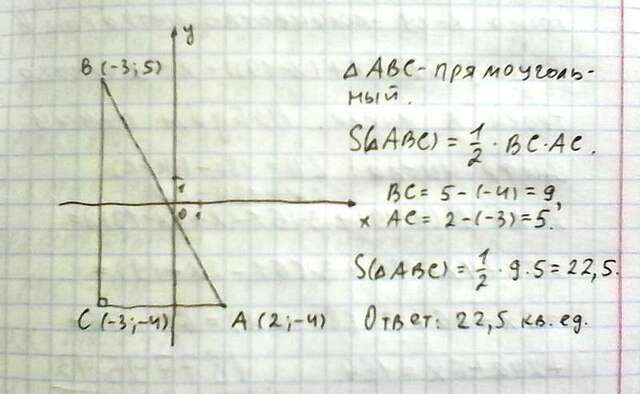 y
B (-3; 5)
1
0 1
x
C (-3; -4)
A (2; -4)
△ ABC - прямоуголь-
ный.
S(△ABC) = 1/2 · BC · AC.
BC = 5 - (-4) = 9,
AC = 2 - (-3) = 5.
S(△ABC) = 1/2 · 9 · 5 = 22,5.
Ответ: 22,5 кв. ед.